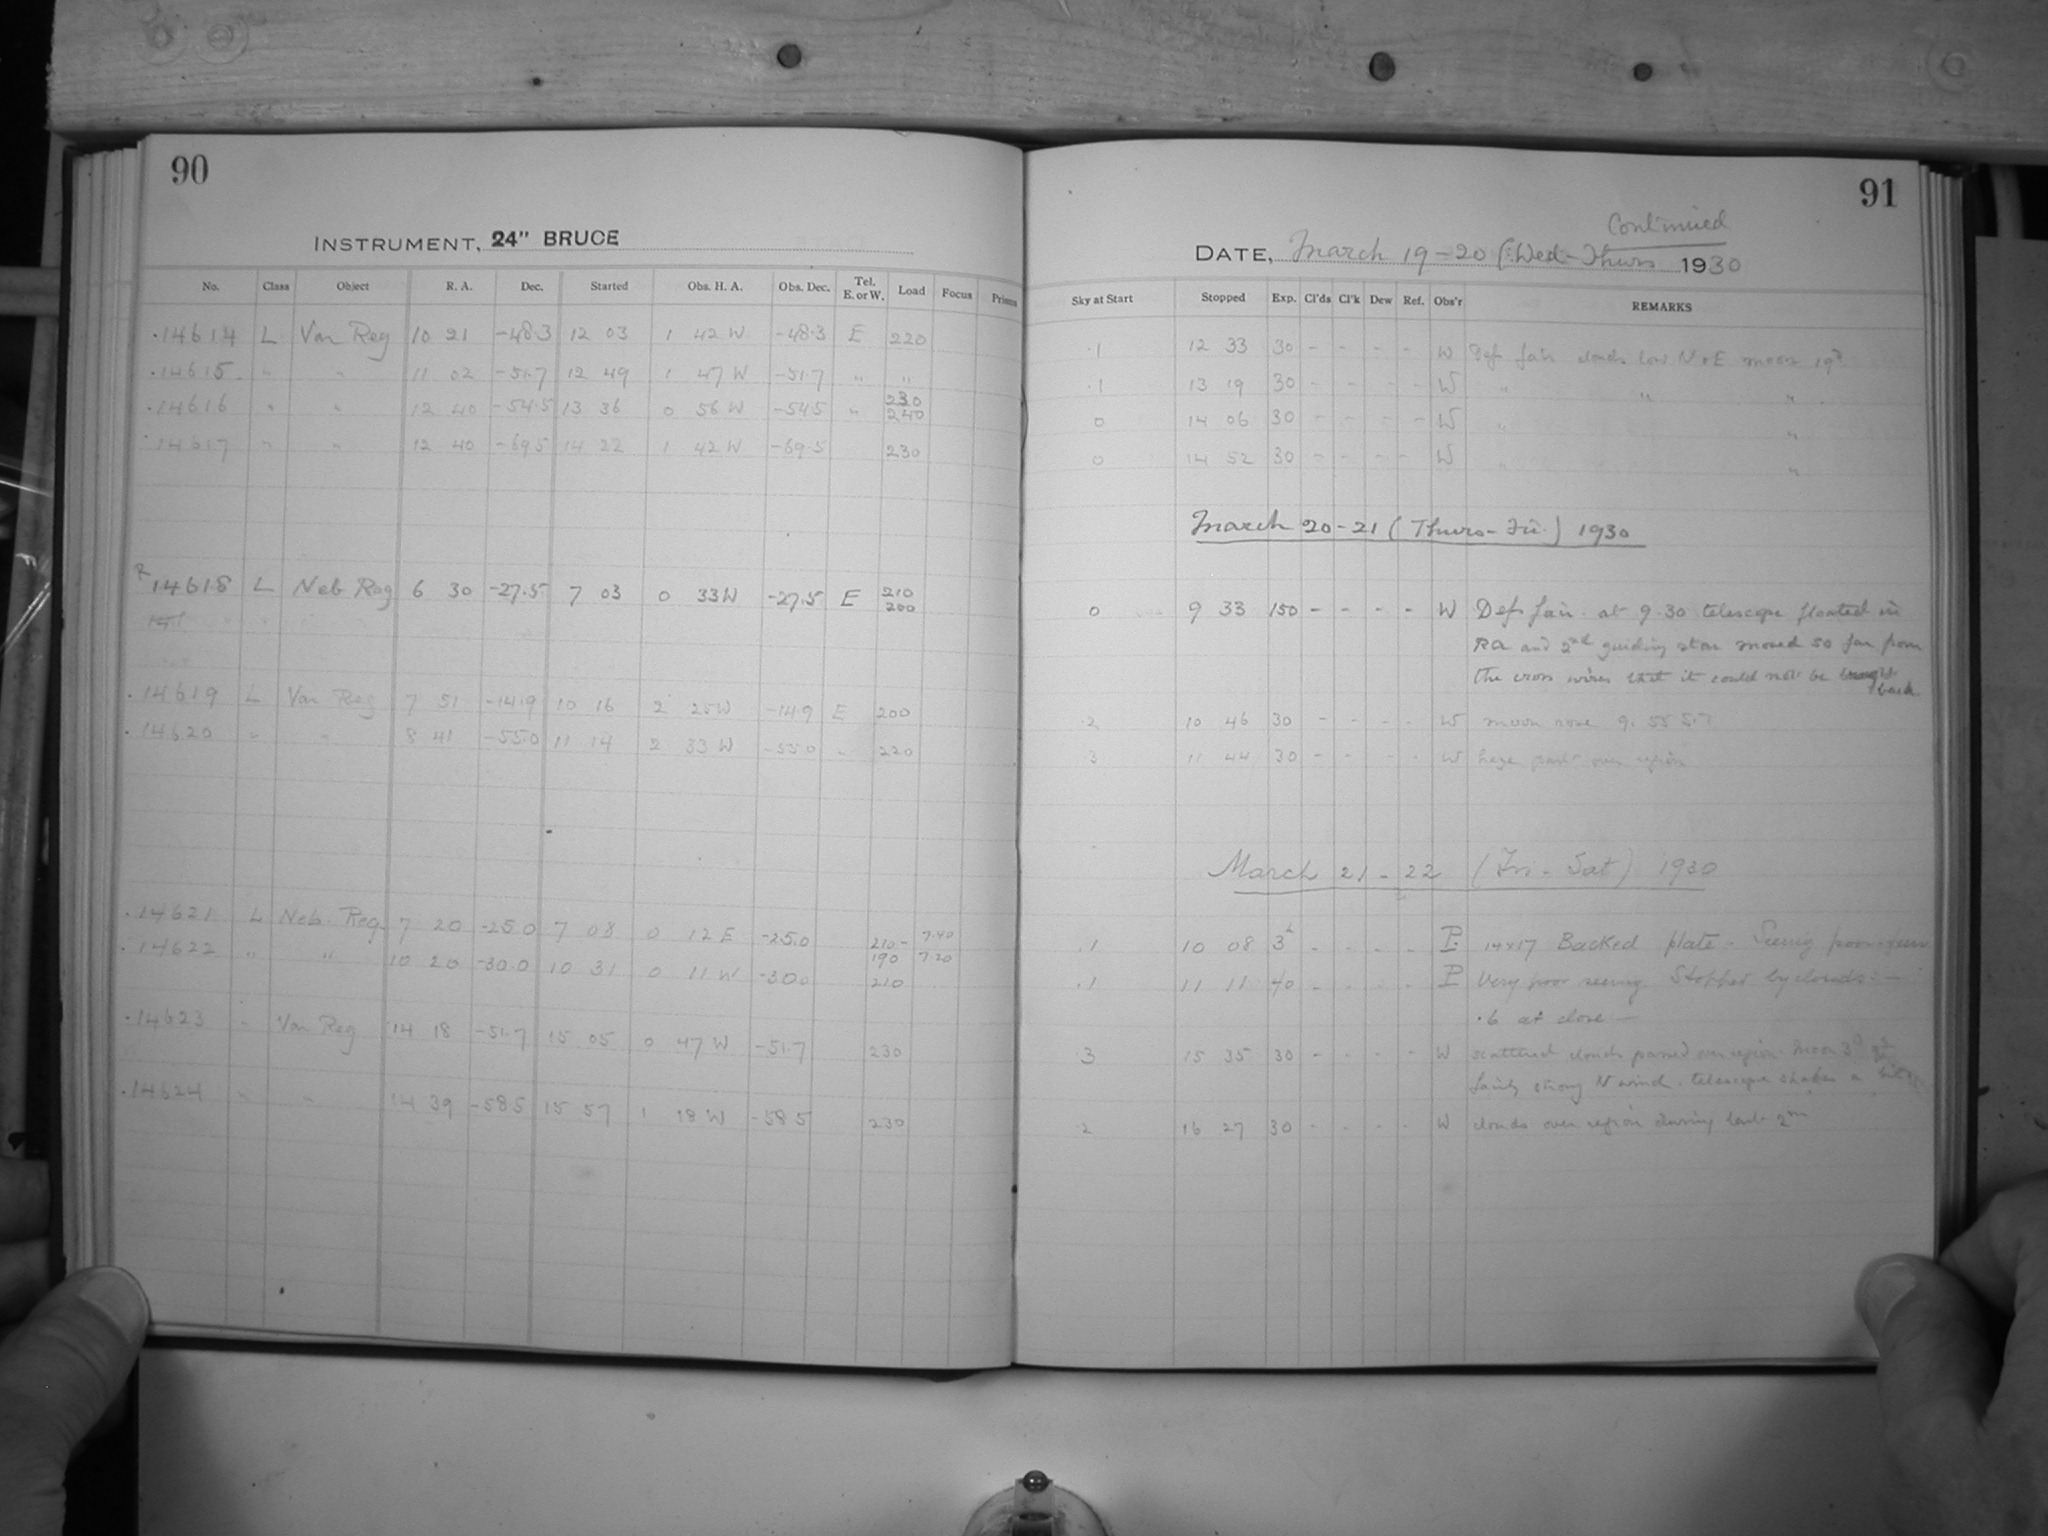 90
INSTRUMENT, 24" BRUCE
No. Class Object R. A. Dec. Started Obs. H. A. Obs. Dec. Tel. E. or W. Load Focus Prism
.14614 L Var Reg 10 21 -48.3 12 03 1 42 W -48.3 E 220
.14615 " " 11 02 -51.7 12 49 1 47 W -51.7 " "
.14616 " " 12 40 -54.5 13 36 0 56 W -54.5 " 230 240
14617 " " 12 40 -69.5 14 22 1 42 W -69.5 230
14618 L Neb Reg 6 30 -27.5 7 03 0 33 W -27.5 E 210 200
.14619 L Var Reg 7 51 -14.9 10 16 2 25 W -14.9 E 200
.14620 " " 8 41 -55.0 11 14 2 33 W -55.0 " 220
.14621 L Neb. Reg. 7 20 -25.0 7 08 0 12 E -25.0 210- 7.40
190 7.20
.14622 " " 10 20 -30.0 10 31 0 11 W -30.0 210
.14623 " Var Reg 14 18 -51.7 15 05 0 47 W -51.7 230
.14624 " " 14 39 -58.5 15 57 1 18 W -58.5 230
91
Continued
DATE, March 19-20 (Wed-Thurs 1930
Sky at Start Stopped Exp. Cl'ds Cl'k Dew Ref. Obs'r REMARKS
.1 12 33 30 - - - - W Def fair clouds low N & E moon 19d
.1 13 19 30 - - - - W " " "
0 14 06 30 - - - - W " "
0 14 52 30 - - - - W " "
March 20-21 (Thurs-Fri) 1930
0 9 33 150 - - - - W Def fair. at 9.30 telescope floated in
RA and 2nd guiding star moved so far from
the cross wires that it could not be brought
back
.2 10 46 30 - - - - W moon rose 9.55 S.T
.3 11 44 30 - - - - W haze over region
March 21-22 (Fri-Sat) 1930
.1 10 08 3h - - - - P. 14x17 Backed plate - Seeing poor
.1 11 11 40 - - - - P Very poor seeing. Stopped by clouds -
.6 at close -
3 15 35 30 - - - - W scattered clouds passed over region. Moon 3d
fairly strong N wind. telescope shakes a
.2 16 27 30 - - - - W clouds over region during last 2m